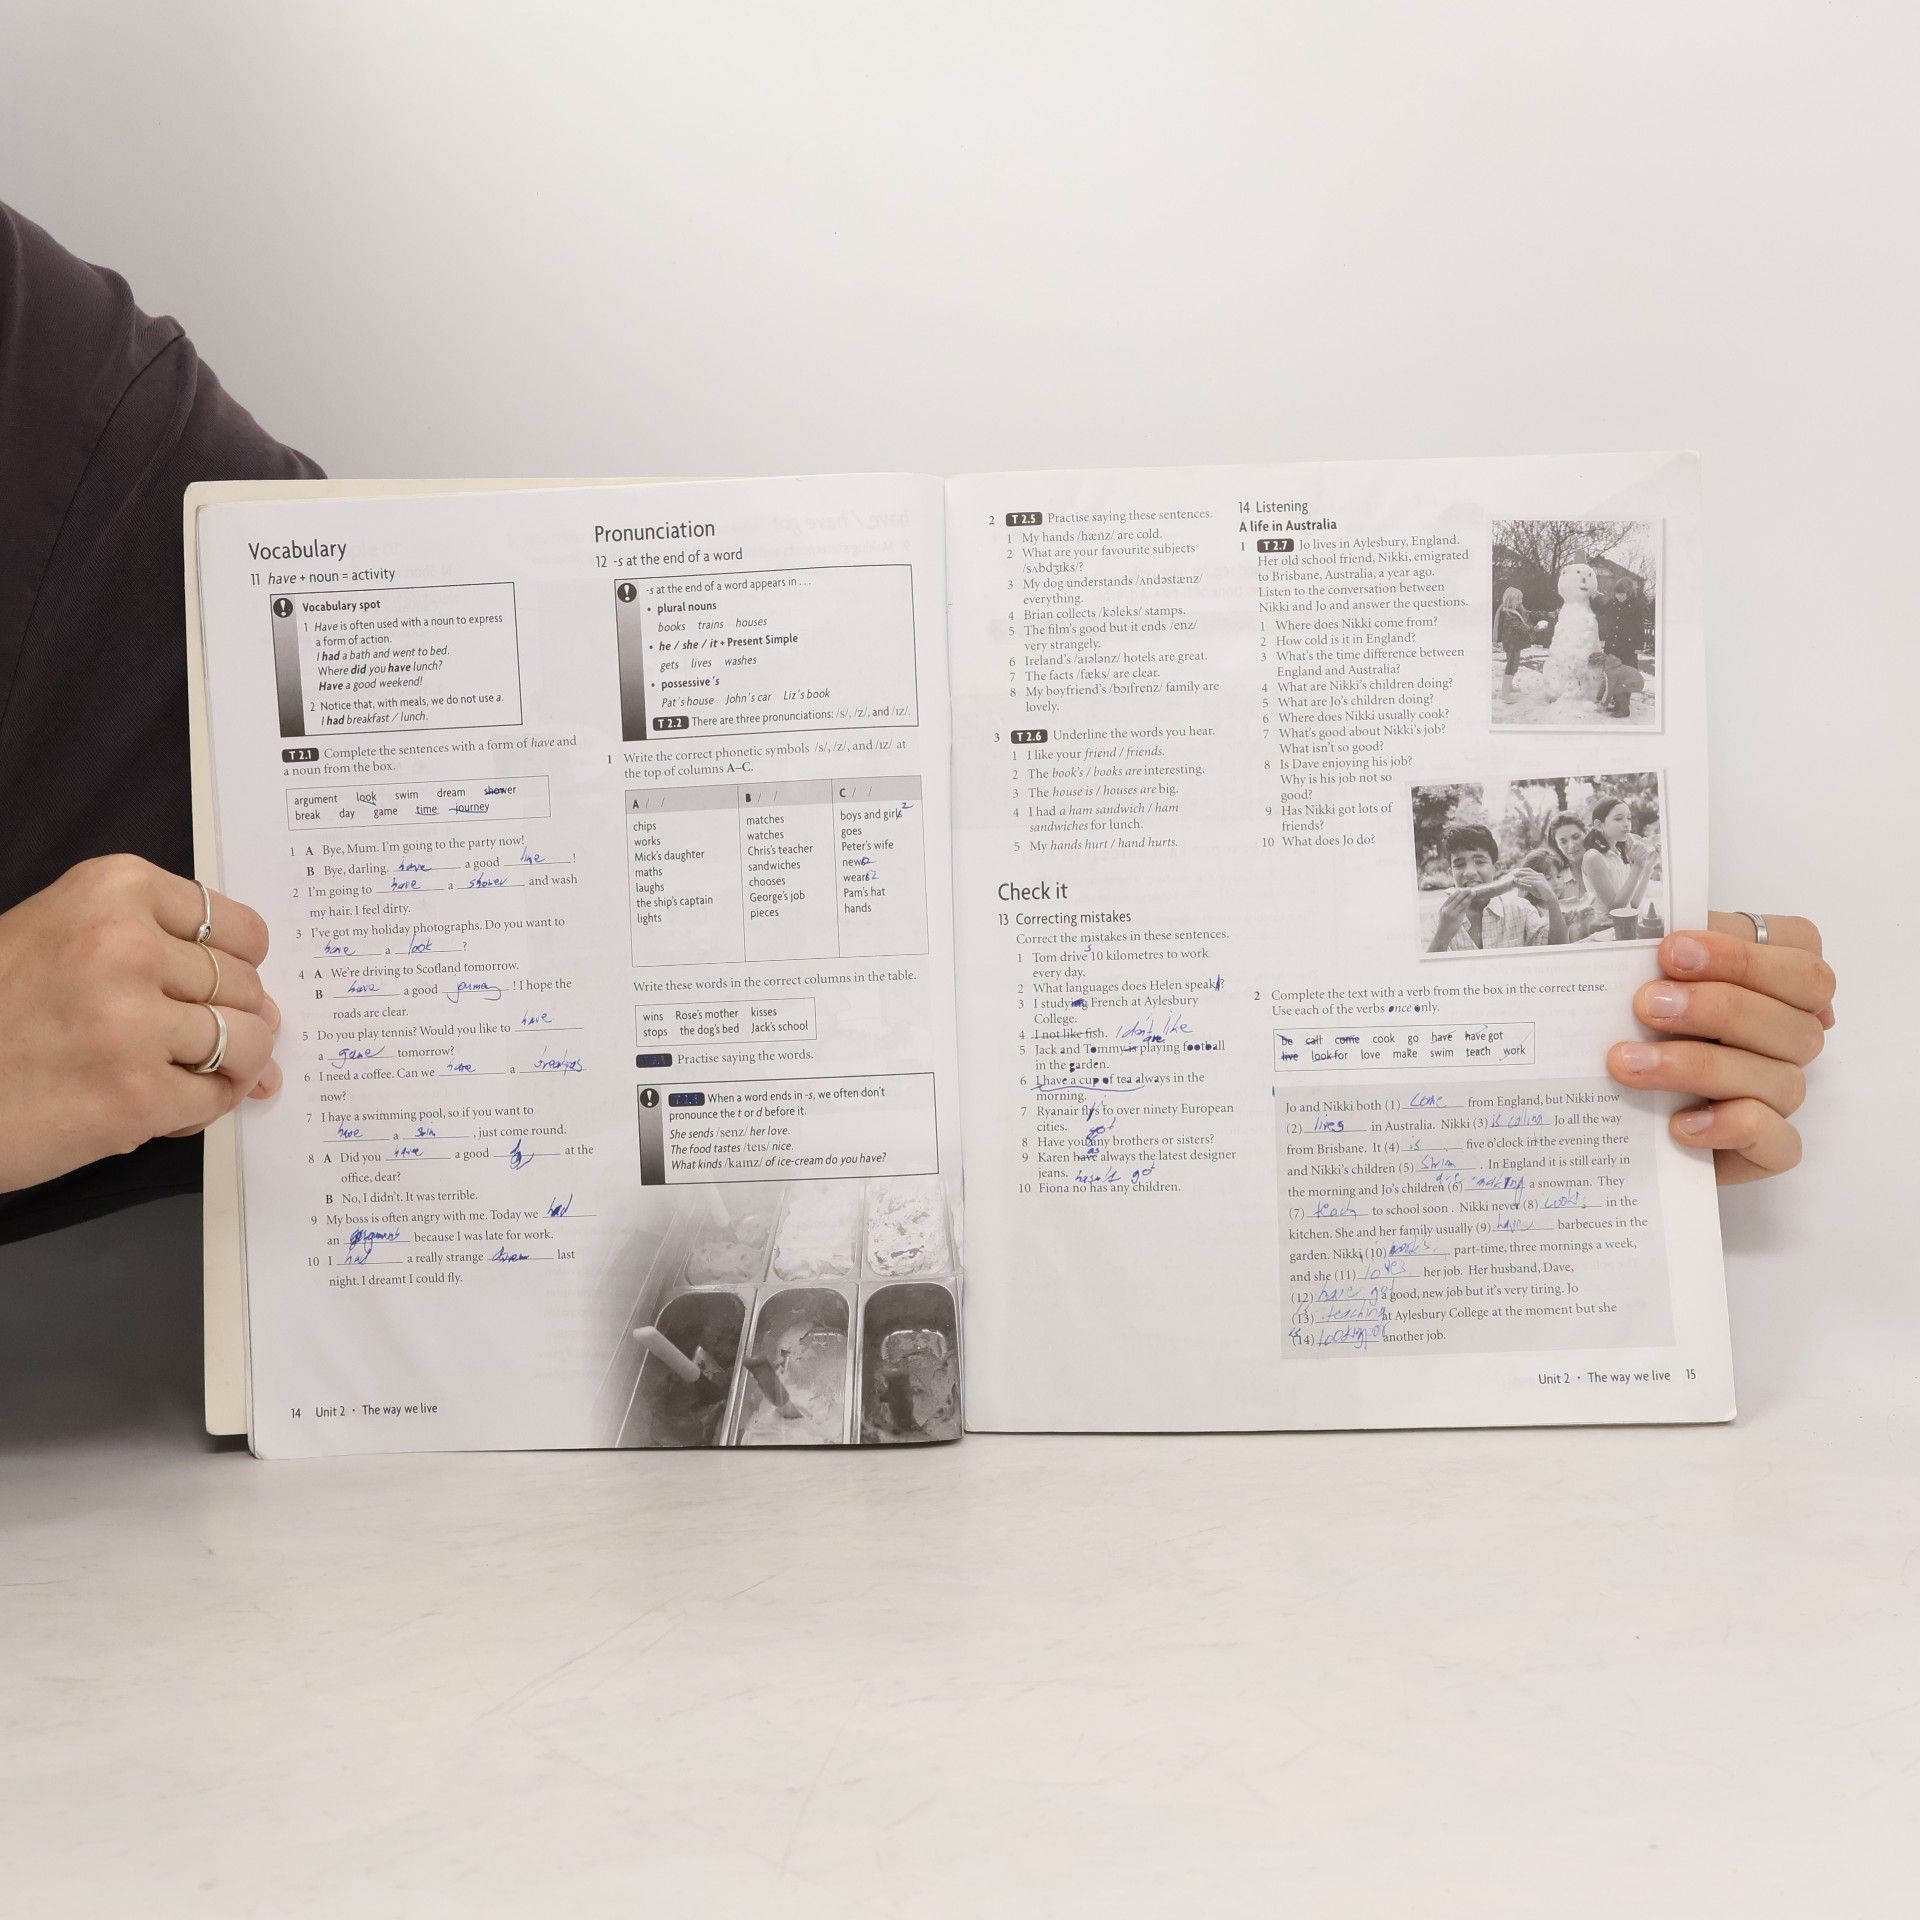 Vocabulary
11 have + noun = activity
Vocabulary spot
1 Have is often used with a noun to express
a form of action.
I had a bath and went to bed.
Where did you have lunch?
Have a good weekend!
2 Notice that, with meals, we do not use a.
I had breakfast / lunch.
T 2.1 Complete the sentences with a form of have and
a noun from the box.
argument look swim dream shower
break day game time journey
1 A Bye, Mum. I'm going to the party now!
B Bye, darling. have a good time !
2 I'm going to have a shower and wash
my hair. I feel dirty.
3 I've got my holiday photographs. Do you want to
have a look ?
4 A We're driving to Scotland tomorrow.
B have a good ! I hope the
roads are clear.
5 Do you play tennis? Would you like to have
a game tomorrow?
6 I need a coffee. Can we have a
now?
7 I have a swimming pool, so if you want to
have a swim , just come round.
8 A Did you have a good at the
office, dear?
B No, I didn't. It was terrible.
9 My boss is often angry with me. Today we had
an because I was late for work.
10 I had a really strange last
night. I dreamt I could fly.
14 Unit 2 • The way we live
Pronunciation
12 -s at the end of a word
-s at the end of a word appears in . . .
• plural nouns
books trains houses
• he / she / it + Present Simple
gets lives washes
• possessive 's
Pat's house John's car Liz's book
T 2.2 There are three pronunciations: /s/, /z/, and /ɪz/.
1 Write the correct phonetic symbols /s/, /z/, and /ɪz/ at
the top of columns A–C.
A / / B / / C / /
chips matches boys and girls z
works watches goes
Mick's daughter Chris's teacher Peter's wife
maths sandwiches news
laughs chooses wears z
the ship's captain George's job Pam's hat
lights pieces hands
Write these words in the correct columns in the table.
wins Rose's mother kisses
stops the dog's bed Jack's school
Practise saying the words.
When a word ends in -s, we often don't
pronounce the t or d before it.
She sends /senz/ her love.
The food tastes /teɪs/ nice.
What kinds /kaɪnz/ of ice-cream do you have?
2 T 2.5 Practise saying these sentences.
1 My hands /hænz/ are cold.
2 What are your favourite subjects
/sʌbdʒɪks/?
3 My dog understands /ʌndəstænz/
everything.
4 Brian collects /kəleks/ stamps.
5 The film's good but it ends /enz/
very strangely.
6 Ireland's /aɪələnz/ hotels are great.
7 The facts /fæks/ are clear.
8 My boyfriend's /bɔɪfrenz/ family are
lovely.
3 T 2.6 Underline the words you hear.
1 I like your friend / friends.
2 The book's / books are interesting.
3 The house is / houses are big.
4 I had a ham sandwich / ham
sandwiches for lunch.
5 My hands hurt / hand hurts.
Check it
13 Correcting mistakes
Correct the mistakes in these sentences.
s
1 Tom drive 10 kilometres to work
every day.
2 What languages does Helen speaks?
3 I studying French at Aylesbury
College.
4 I not like fish. I don't like
are
5 Jack and Tommy is playing football
in the garden.
6 I have a cup of tea always in the
morning.
7 Ryanair flys to over ninety European
cities.
got
8 Have you any brothers or sisters?
as
9 Karen have always the latest designer
jeans. hasn't got
10 Fiona no has any children.
14 Listening
A life in Australia
1 T 2.7 Jo lives in Aylesbury, England.
Her old school friend, Nikki, emigrated
to Brisbane, Australia, a year ago.
Listen to the conversation between
Nikki and Jo and answer the questions.
1 Where does Nikki come from?
2 How cold is it in England?
3 What's the time difference between
England and Australia?
4 What are Nikki's children doing?
5 What are Jo's children doing?
6 Where does Nikki usually cook?
7 What's good about Nikki's job?
What isn't so good?
8 Is Dave enjoying his job?
Why is his job not so
good?
9 Has Nikki got lots of
friends?
10 What does Jo do?
2 Complete the text with a verb from the box in the correct tense.
Use each of the verbs once only.
be call come cook go have have got
live look for love make swim teach work
Jo and Nikki both (1) come from England, but Nikki now
(2) lives in Australia. Nikki (3) is calling Jo all the way
from Brisbane. It (4) is five o'clock in the evening there
and Nikki's children (5) swim . In England it is still early in
the morning and Jo's children (6) are making a snowman. They
(7) teach to school soon . Nikki never (8) cooks in the
kitchen. She and her family usually (9) have barbecues in the
garden. Nikki (10) works part-time, three mornings a week,
and she (11) loves her job. Her husband, Dave,
(12) have got a good, new job but it's very tiring. Jo
(13) is teaching at Aylesbury College at the moment but she
(14) another job.
Unit 2 • The way we live 15